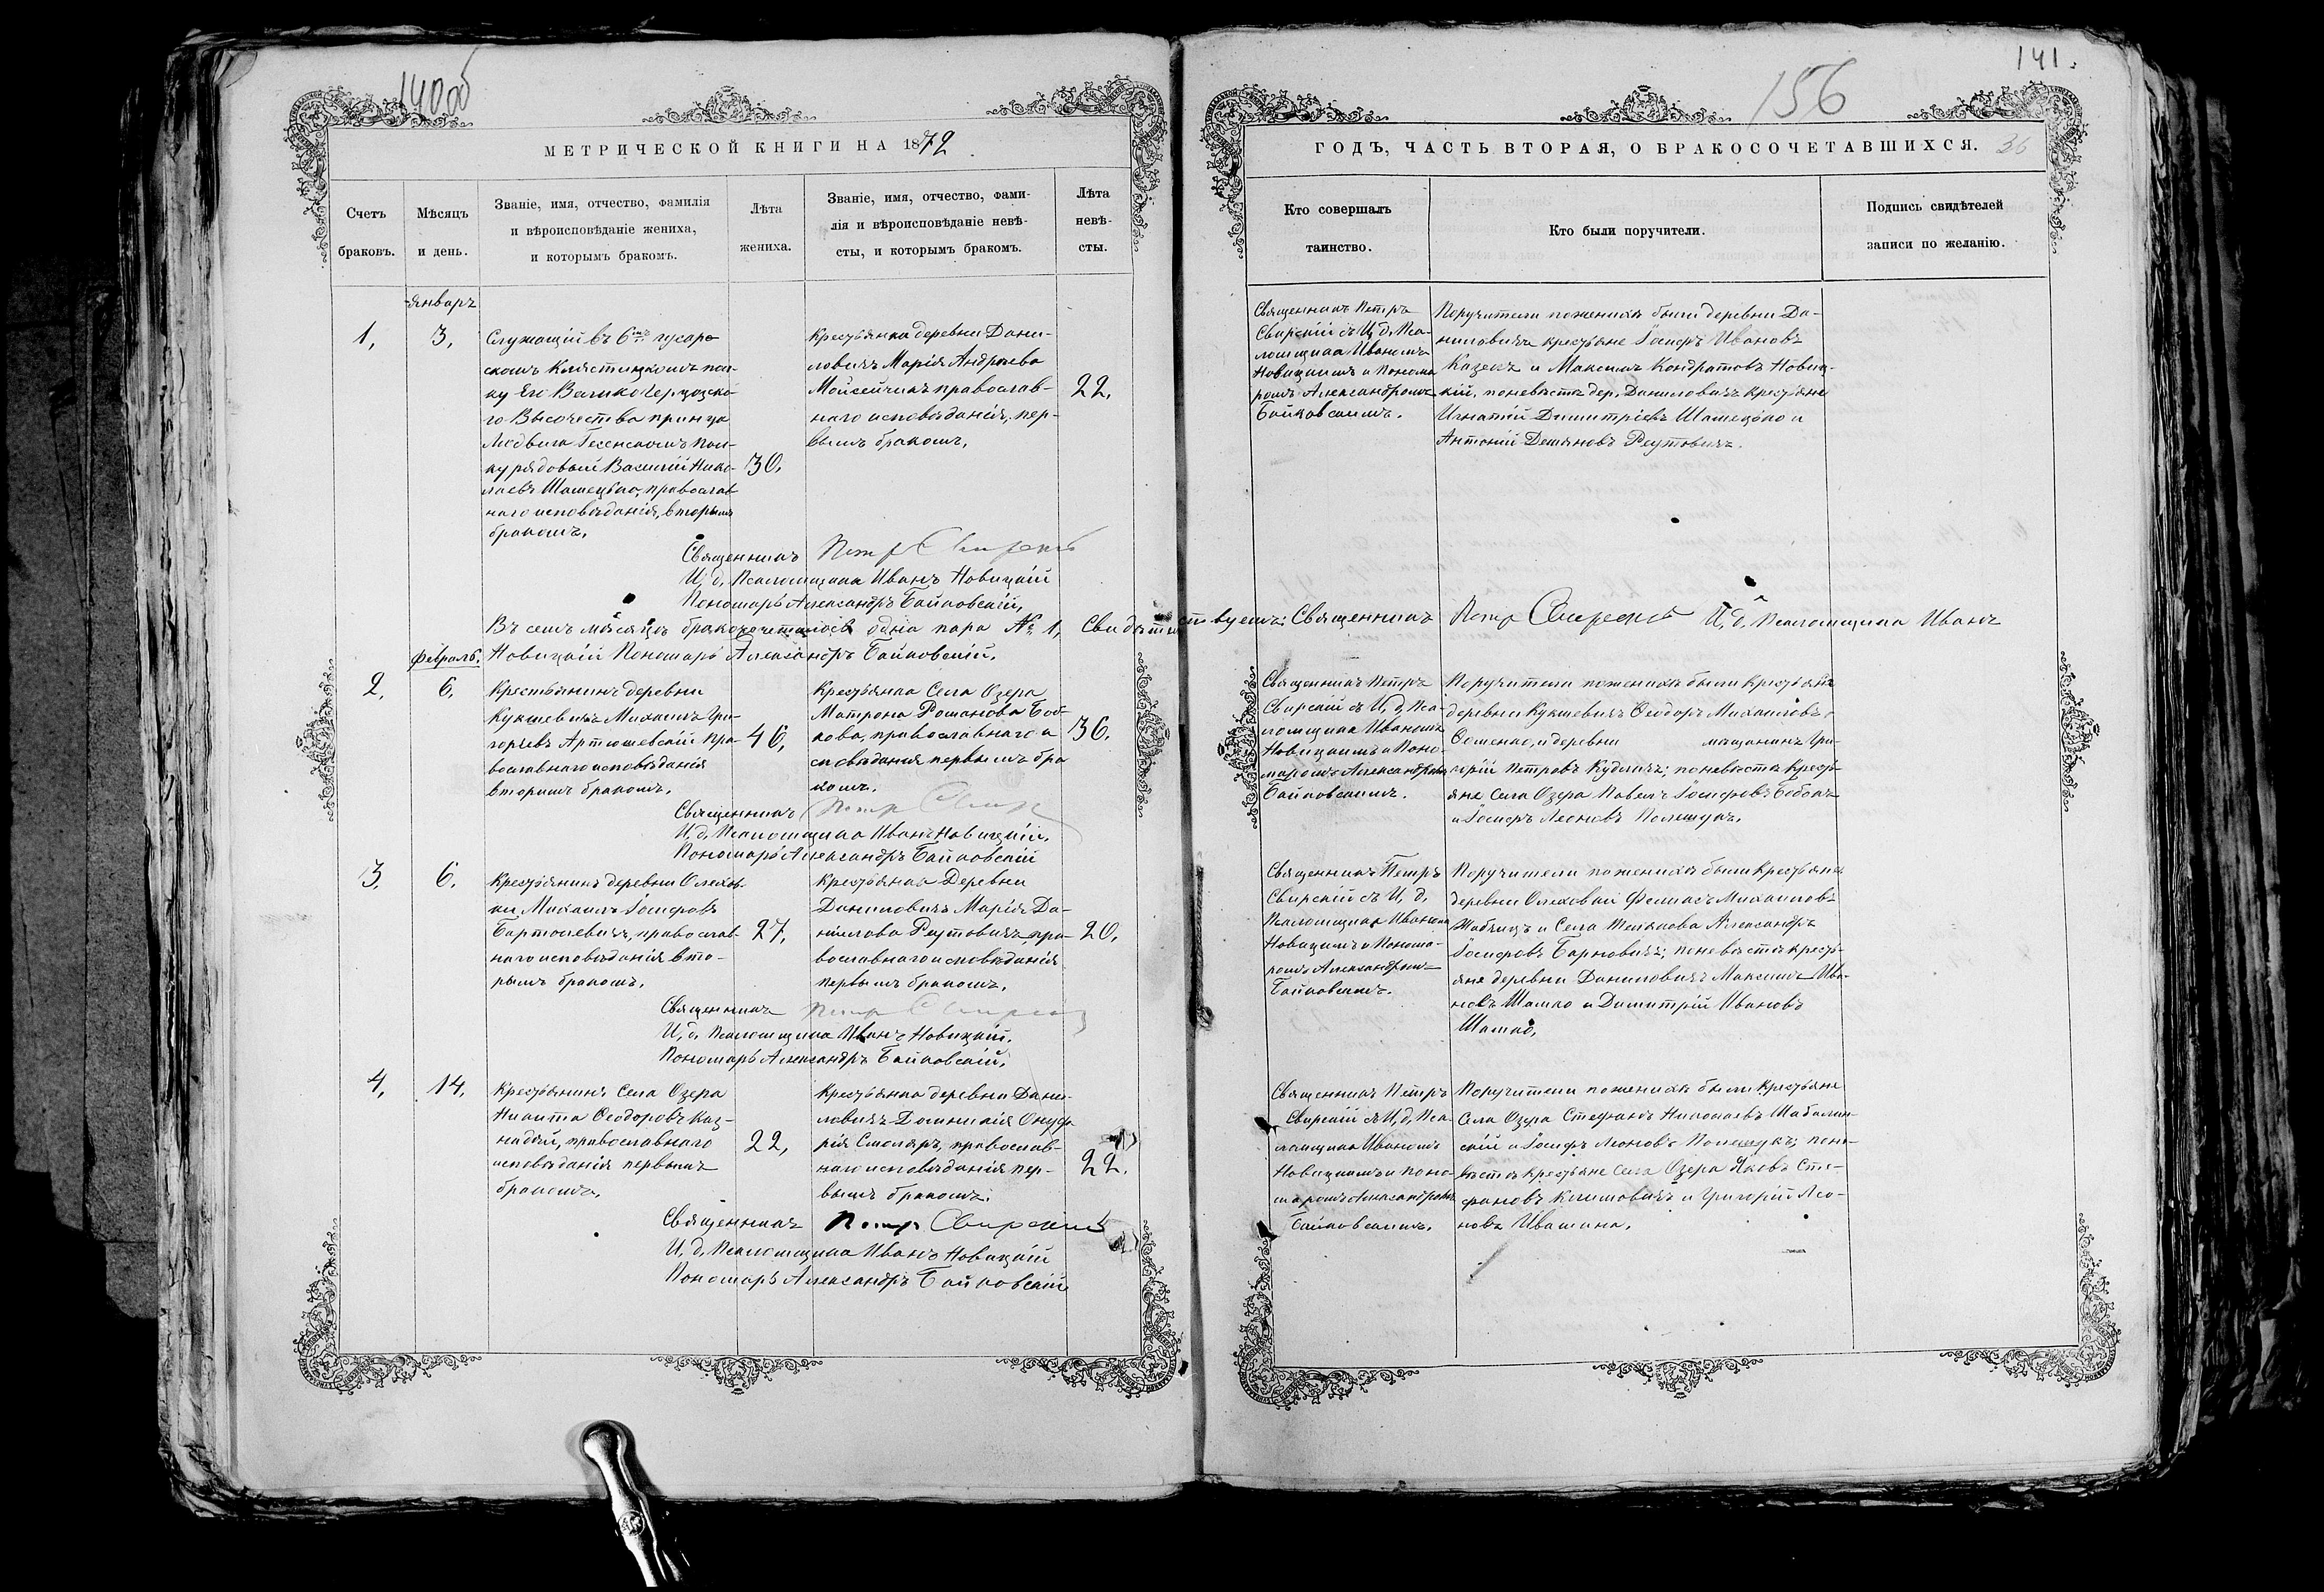 140об
МЕТРИЧЕСКОЙ КНИГИ НА 1872
Счетъ браковъ.
Мѣсяцъ и день.
Званіе, имя, отчество, фамилія
и вѣроисповѣданіе жениха,
и которымъ бракомъ.
Лѣта жениха.
Званіе, имя, отчество, фами-
лія и вѣроисповѣданіе невѣ-
сты, и которымъ бракомъ.
Лѣта невѣ-
сты.
Январь
1,
3,
Служащій въ 6мъ гусар-
скомъ Клястицкомъ пол-
ку Его Великогерцогска-
го Высочества принца
Людвига Гессенскомъ пол-
ку рядовый Василій Нико-
лаевъ Шамецько, православ-
наго исповѣданія, вторымъ
бракомъ,
30,
Крестьянка деревни Дани-
ловичъ Марія Андреева
Мойсейчикъ православ-
наго исповѣданія, пер-
вымъ бракомъ,
22,
Священникъ Петръ Свирскій
И, д, Псаломщика Иванъ Новицкій
Пономарь Александръ Байковскій,
Въ семъ мѣсяцѣ бракосочеталось одна пара № 1, Свидѣтельствуемъ: Священникъ Петръ Свирскій И, д, Псаломщика Иванъ
Новицкій Пономарь Александръ Байковскій,
Февраль,
2,
6,
Крестьянинъ деревни
Кукшевичъ Михаилъ Гри-
горьевъ Артюшевскій пра-
вославнаго исповѣданія
вторымъ бракомъ,
46,
Крестьянка Села Озера
Матрона Романова Боб-
кова, православнаго и
сповѣданія первымъ бра
комъ.
36,
Священникъ Петръ Свирскій
И, д, Псаломщика Иванъ Новицкій,
Пономарь Александръ Байковскій
3,
6,
Крестьянинъ деревни Олехов-
ки Михаилъ Іосифовъ
Бартошевичъ, православ-
наго исповѣданія вто-
рымъ бракомъ,
27,
Крестьянка Деревни
Даниловичъ Марія Да-
нилова Реутовичъ, пра-
вославнаго исповѣданія
первымъ бракомъ,
20,
Священникъ Петръ Свирскій
И, д, Псаломщика Иванъ Новицкій,
Пономарь Александръ Байковскій,
4,
14,
Крестьянинъ Села Озера
Никита Ѳеодоровъ Каз-
надѣй, православнаго
исповѣданія первымъ
бракомъ,
22,
Крестьянка деревни Дани-
ловичъ Доминикія Онуф-
рія Смоляръ, православ-
наго исповѣданія пер-
вымъ бракомъ.
22.
Священникъ Петръ Свирскій
И, д, Псаломщика Иванъ Новицкій
Пономарь Александръ Байковскій
141.
156
36
ГОДЪ, ЧАСТЬ ВТОРАЯ, О БРАКОСОЧЕТАВШИХСЯ.
Кто совершалъ
таинство.
Кто были поручители.
Подпись свидѣтелей
записи по желанію.
Священникъ Петръ
Свирскій съ И, д, Пса-
ломщика Иваномъ
Новицкимъ и Понома
ромъ Александромъ
Байковскимъ.
Поручители по женихѣ были деревни Да-
ниловичъ крестьяне Іосифъ Ивановъ
Казекъ и Максимъ Кондратовъ Новиц-
кій, по невѣстѣ дер, Даниловичъ крестьяне
Игнатій Димитріевъ Шамецько и
Антоній Демяновъ Реутовичъ.
Священникъ Петръ
Свирскій съ И, д, Пса-
ломщика Иваномъ
Новицкимъ и Поно-
маромъ Александромъ
Байковскимъ.
Поручители по женихѣ были крестьяне
деревни Кукшевичъ Ѳеодоръ Михаиловъ
и деревни мѣщанинъ Гри-
горій Петровъ Кудличъ; по невѣстѣ кресть-
яне Села Озера Павелъ Іосифовъ Бобокъ
и Іосифъ Леоновъ Полещукъ.
Священникъ Петръ
Свирскій съ И, д,
Псаломщика Иваномъ
Новицкимъ и Понома-
ромъ Александромъ
Байковскимъ.
Поручители по женихѣ были крестьяне
деревни Олеховки Ѳеликсъ Михаиловъ
и Села Телякова Александръ
Іосифовъ Барновичъ; по невѣстѣ кресть-
яне деревни Даниловичъ Максимъ Ива-
новъ Шашко и Димитрій Ивановъ
Шашко,
Священникъ Петръ
Свирскій съ И, д, Пса-
ломщика Иваномъ
Новицкимъ и Поно-
маромъ Александромъ
Байковскимъ.
Поручители по женихѣ были крестьяне
Села Озера Стефанъ Николаевъ Шабалин-
скій и Іосифъ Леоновъ Полещукъ; по не-
вѣстѣ крестьяне Села Озера Яковъ Сте-
фановъ Климовичъ и Григорій Лео-
новъ Ивашина,